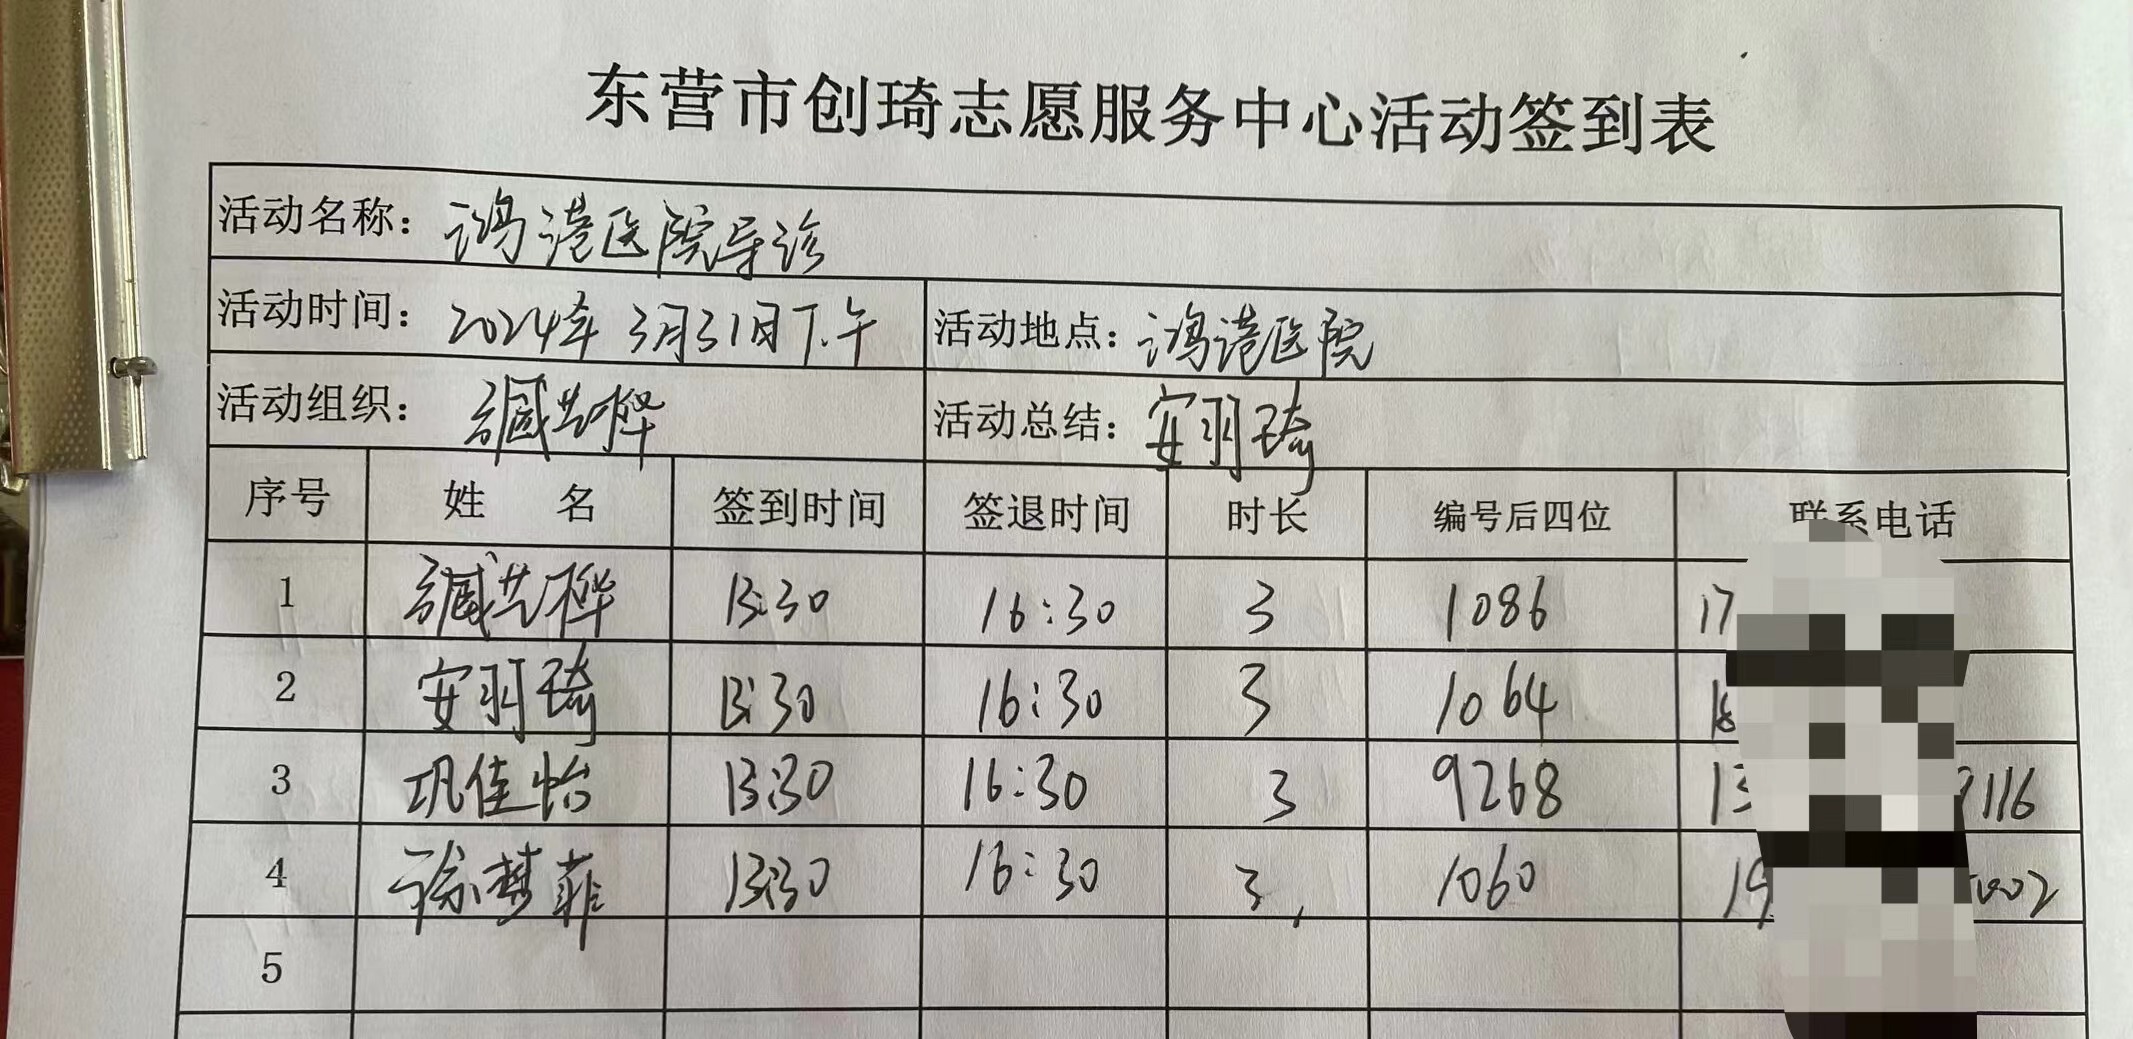 东营市创琦志愿服务中心活动签到表
活动名称：鸿港医院导诊
活动时间：2024年3月31日下午 活动地点：鸿港医院
活动组织： 活动总结：安羽琦
序号 姓 名 签到时间 签退时间 时长 编号后四位 联系电话
1 13:30 16:30 3 1086 17
2 安羽琦 13:30 16:30 3 1064 18
3 巩佳怡 13:30 16:30 3 9268 13 116
4 徐梦菲 13:30 16:30 3 1060 19 002
5